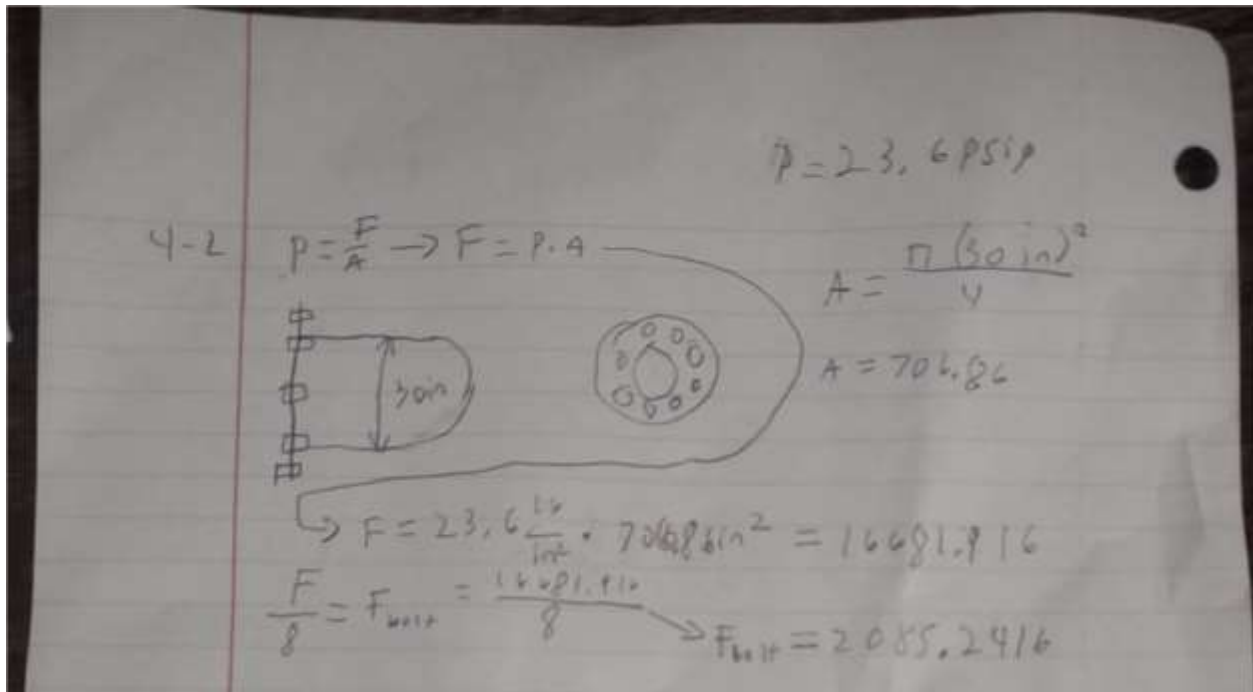 P = 23.6 psig
4-2 P = F/A → F = P·A
A = π(30 in)²/4
30in
A = 706.86
→ F = 23.6 lb/in² · 706.86in² = 16681.916
F/8 = Fbolt = 16681.916/8 → Fbolt = 2085.2416